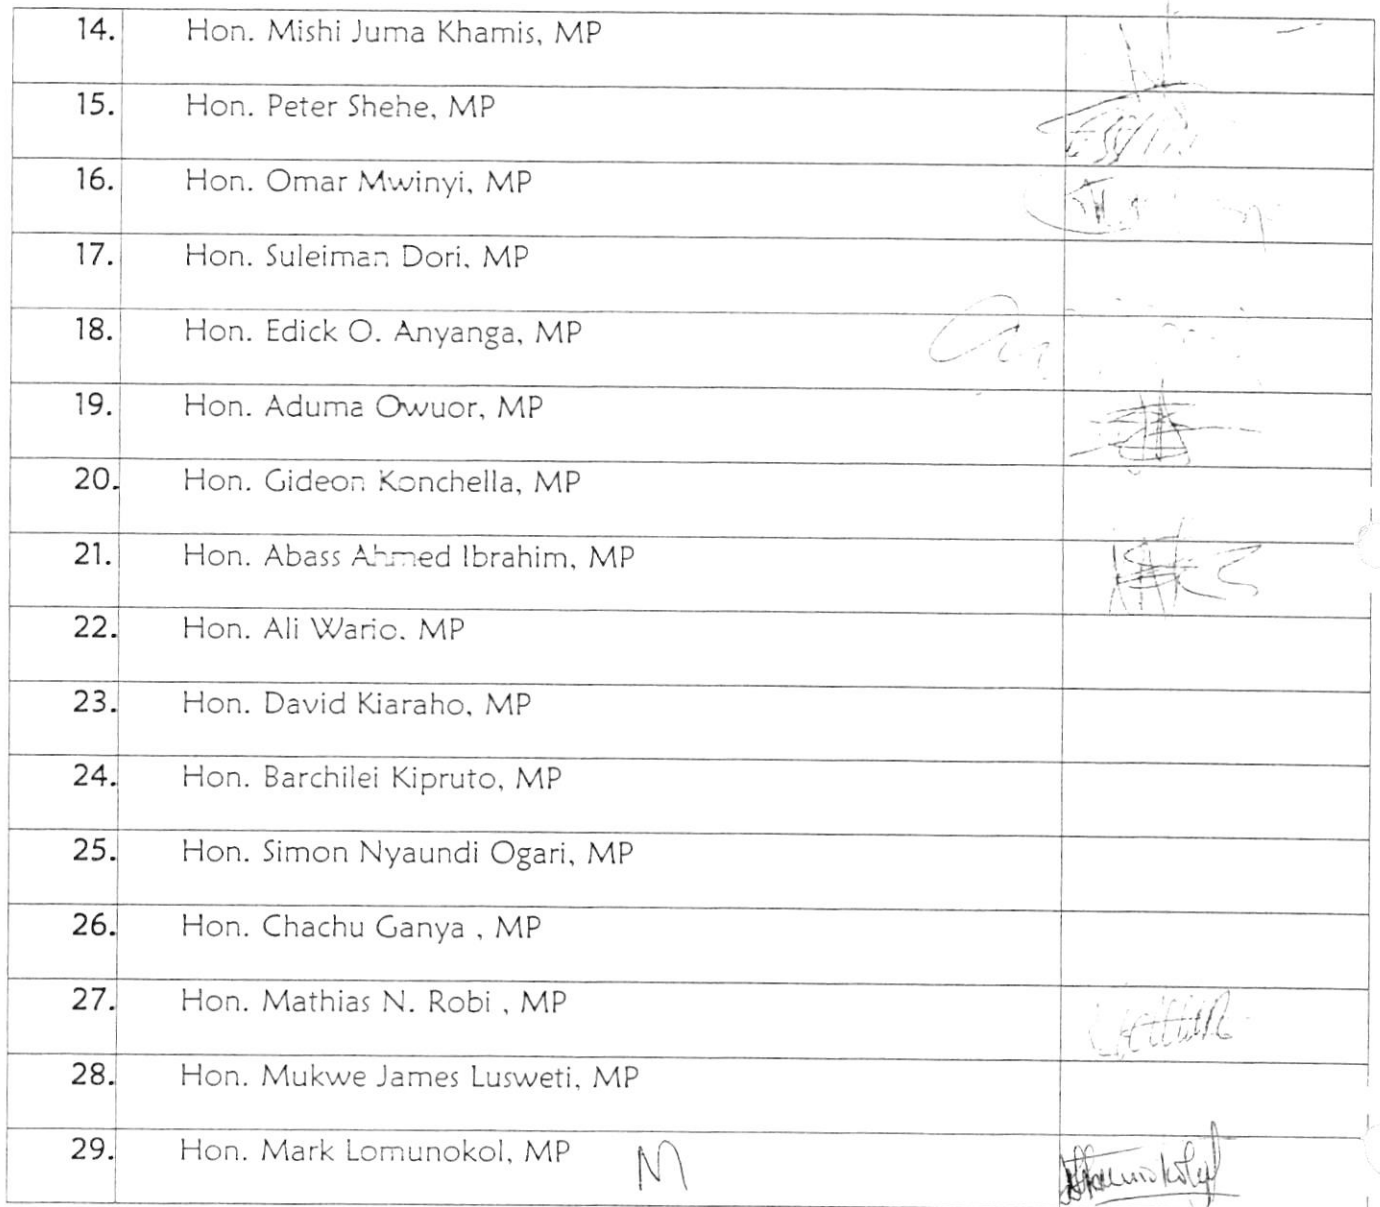 14. Hon. Mishi Juma Khamis, MP
15. Hon. Peter Shehe, MP
16. Hon. Omar Mwinyi, MP
17. Hon. Suleiman Dori, MP
18. Hon. Edick O. Anyanga, MP
19. Hon. Aduma Owuor, MP
20. Hon. Gideon Konchella, MP
21. Hon. Abass Ahmed Ibrahim, MP
22. Hon. Ali Wario. MP
23. Hon. David Kiaraho, MP
24. Hon. Barchilei Kipruto, MP
25. Hon. Simon Nyaundi Ogari, MP
26. Hon. Chachu Ganya , MP
27. Hon. Mathias N. Robi , MP
28. Hon. Mukwe James Lusweti, MP
29. Hon. Mark Lomunokol, MP M